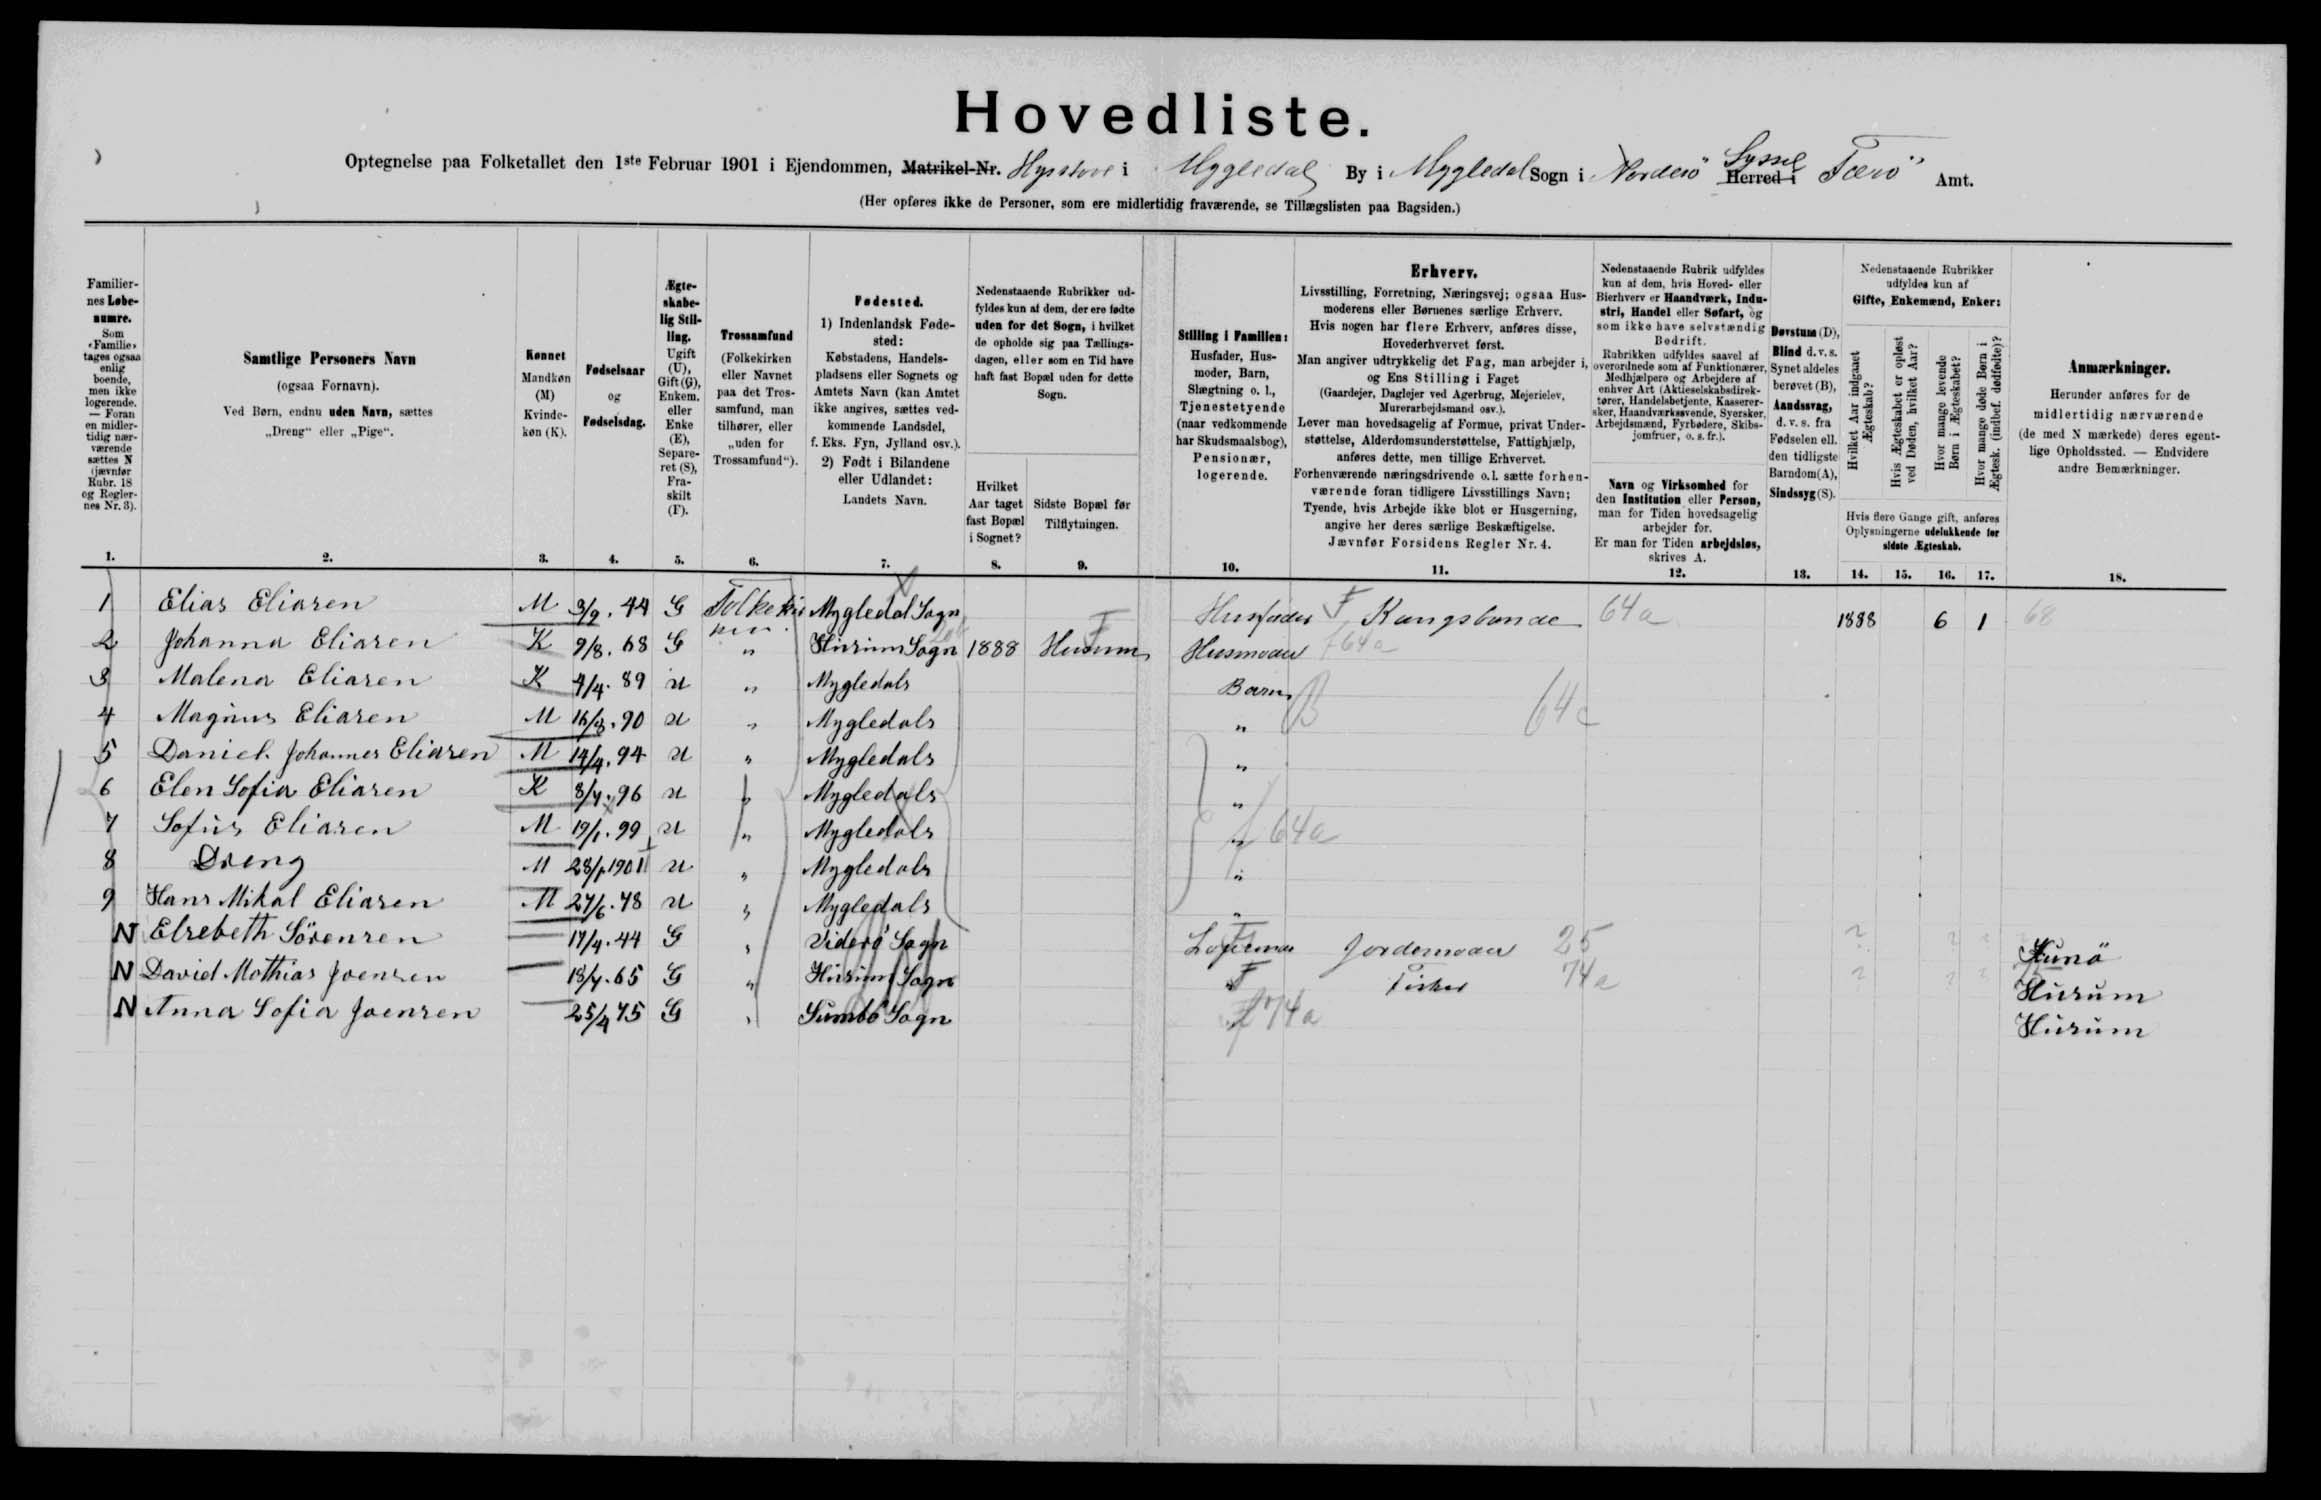 Hovedliste.
Optegnelse paa Folketallet den 1ste Februar 1901 i Ejendommen, Matrikel-Nr. Hysstove i Myggledal By i Myggledal Sogn i Norderö Syssel Herred i Færö Amt.
(Her opføres ikke de Personer, som ere midlertidig fraværende, se Tillægslisten paa Bagsiden.)
Familier-
nes Løbe-
numre.
Som
«Familie»
tages ogsaa
enlig
boende,
men ikke
logerende.
— Foran
en midler-
tidig nær-
værende
sættes N
(jævnfør
Rubr. 18
og Regler-
nes Nr. 3).
1.
Samtlige Personers Navn
(ogsaa Fornavn).
Ved Børn, endnu uden Navn, sættes
„Dreng“ eller „Pige“.
2.
Kønnet
Mandkøn
(M)
Kvinde-
køn (K).
3.
Fødselsaar
og
Fødselsdag.
4.
Ægte-
skabe-
lig Stil-
ling.
Ugift
(U),
Gift (G),
Enkem.
eller
Enke
(E),
Separe-
ret (S),
Fra-
skilt
(F).
5.
Trossamfund
(Folkekirken
eller Navnet
paa det Tros-
samfund, man
tilhører, eller
„uden for
Trossamfund“).
6.
Fødested.
1) Indenlandsk Føde-
sted:
Købstadens, Handels-
pladsens eller Sognets og
Amtets Navn (kan Amtet
ikke angives, sættes ved-
kommende Landsdel,
f. Eks. Fyn, Jylland osv.).
2) Født i Bilandene
eller Udlandet:
Landets Navn.
7.
Nedenstaaende Rubrikker ud-
fyldes kun af dem, der ere fødte
uden for det Sogn, i hvilket
de opholde sig paa Tællings-
dagen, eller som en Tid have
haft fast Bopæl uden for dette
Sogn.
Hvilket
Aar taget
fast Bopæl
i Sognet?
8.
Sidste Bopæl før
Tilflytningen.
9.
Stilling i Familien:
Husfader, Hus-
moder, Barn,
Slægtning o. l.,
Tjenestetyende
(naar vedkommende
har Skudsmaalsbog),
Pensionær,
logerende.
10.
Erhverv.
Livsstilling, Forretning, Næringsvej; ogsaa Hus-
moderens eller Børnenes særlige Erhverv.
Hvis nogen har flere Erhverv, anføres disse,
Hovederhvervet først.
Man angiver udtrykkelig det Fag, man arbejder i,
og Ens Stilling i Faget
(Gaardejer, Daglejer ved Agerbrug, Mejerielev,
Murerarbejdsmand osv.).
Lever man hovedsagelig af Formue, privat Under-
støttelse, Alderdomsunderstøttelse, Fattighjælp,
anføres dette, men tillige Erhvervet.
Forhenværende næringsdrivende o. l. sætte forhen-
værende foran tidligere Livsstillings Navn;
Tyende, hvis Arbejde ikke blot er Husgerning,
angive her deres særlige Beskæftigelse.
Jævnfør Forsidens Regler Nr. 4.
11.
Nedenstaaende Rubrik udfyldes
kun af dem, hvis Hoved- eller
Bierhverv er Haandværk, Indu-
stri, Handel eller Søfart, og
som ikke have selvstændig
Bedrift.
Rubrikken udfyldes saavel af
overordnede som af Funktionærer,
Medhjælpere og Arbejdere af
enhver Art (Aktieselskabsdirek-
tører, Handelsbetjente, Kasserer-
sker, Haandværkssvende, Syersker,
Arbejdsmænd, Fyrbødere, Skibs-
jomfruer, o. s. fr.).
Navn og Virksomhed for
den Institution eller Person,
man for Tiden hovedsagelig
arbejder for.
Er man for Tiden arbejdsløs,
skrives A.
12.
Døvstum (D),
Blind d. v. s.
Synet aldeles
berøvet (B),
Aandssvag,
d. v. s. fra
Fødselen ell.
den tidligste
Barndom (A),
Sindssyg (S).
13.
Nedenstaaende Rubrikker
udfyldes kun af
Gifte, Enkemænd, Enker:
Hvilket Aar indgaaet
Ægteskab?
Hvis Ægteskabet er opløst
ved Døden, hvilket Aar?
Hvor mange levende
Børn i Ægteskabet?
Hvor mange døde Børn i
Ægtesk. (indbef. dødfødte)?
Hvis flere Gange gift, anføres
Oplysningerne udelukkende for
sidste Ægteskab.
14. 15. 16. 17.
Anmærkninger.
Herunder anføres for de
midlertidig nærværende
(de med N mærkede) deres egent-
lige Opholdssted. — Endvidere
andre Bemærkninger.
18.
1 Elias Eliasen M 3/9. 44 G Folkekir Mygledal Sogn Husfader F Kongsbonde 64a 1888 6 1 68
ken.
2 Johanna Eliasen K 9/8. 68 G " Husum Sogn 1888 Husum F Husmoder f 64a
3 Malena Eliasen K 4/4. 89 U " Mygledals Barn
4 Magnus Eliasen M 16/8. 90 U " Mygledals " B 64c
5 Daniel Johannes Eliasen M 14/4. 94 U " Mygledals "
6 Elen Sofia Eliasen K 8/4. 96 U " Mygledals "
7 Sofus Eliasen M 19/1. 99 U " Mygledals " f 64a
8 Dreng M 28/1 1901 U " Mygledals "
9 Hans Mikal Eliasen M 27/6. 78 U " Mygledals "
N Elsebeth Sörensen 17/4. 44 G " Viderö Sogn Jordemoder 25 ? ? ? Kunö
N David Mathias Joensen 18/4. 65 G " Husum Sogn F Fisker 74a ? ? ? Husum
N Anna Sofia Joensen 25/4 75 G " Sumbö Sogn f 74a Husum